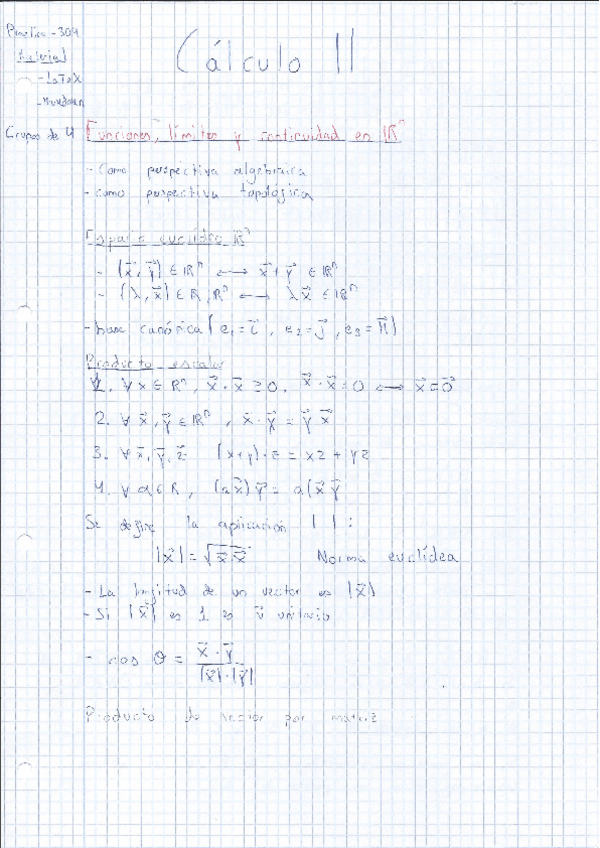 Práctica - 304
Material
- LaTeX
- Markdown
Grupos de 4
Cálculo II
Funciones, límites y continuidad en ℝⁿ
- Como perspectiva algebraica
- como perspectiva topológica
Espacio euclídeo ℝⁿ
- (x⃗, y⃗) ∈ ℝⁿ ⟷ x⃗ + y⃗ ∈ ℝⁿ
- (λ, x⃗) ∈ ℝ, ℝⁿ ⟷ λx⃗ ∈ ℝⁿ
- base canónica (e₁ = i⃗, e₂ = j⃗, e₃ = k⃗)
Producto escalar
1. ∀x ∈ ℝⁿ, x⃗ · x⃗ ≥ 0. x⃗ · x⃗ = 0 ⟷ x⃗ = 0⃗
2. ∀ x⃗, y⃗ ∈ ℝⁿ, x⃗ · y⃗ = y⃗ x⃗
3. ∀ x⃗, y⃗, z⃗ (x+y) · z = xz + yz
4. ∀ a ∈ R, (a x⃗) y⃗ = a(x⃗ y⃗
Se define la aplicación | | :
|x⃗| = √x⃗ · x⃗ Norma euclídea
- La longitud de un vector es |x⃗|
- Si |x⃗| es 1 es v⃗ unitario
- cos θ = x⃗ · y⃗ / |x⃗| · |y⃗|
Producto de vector por matriz